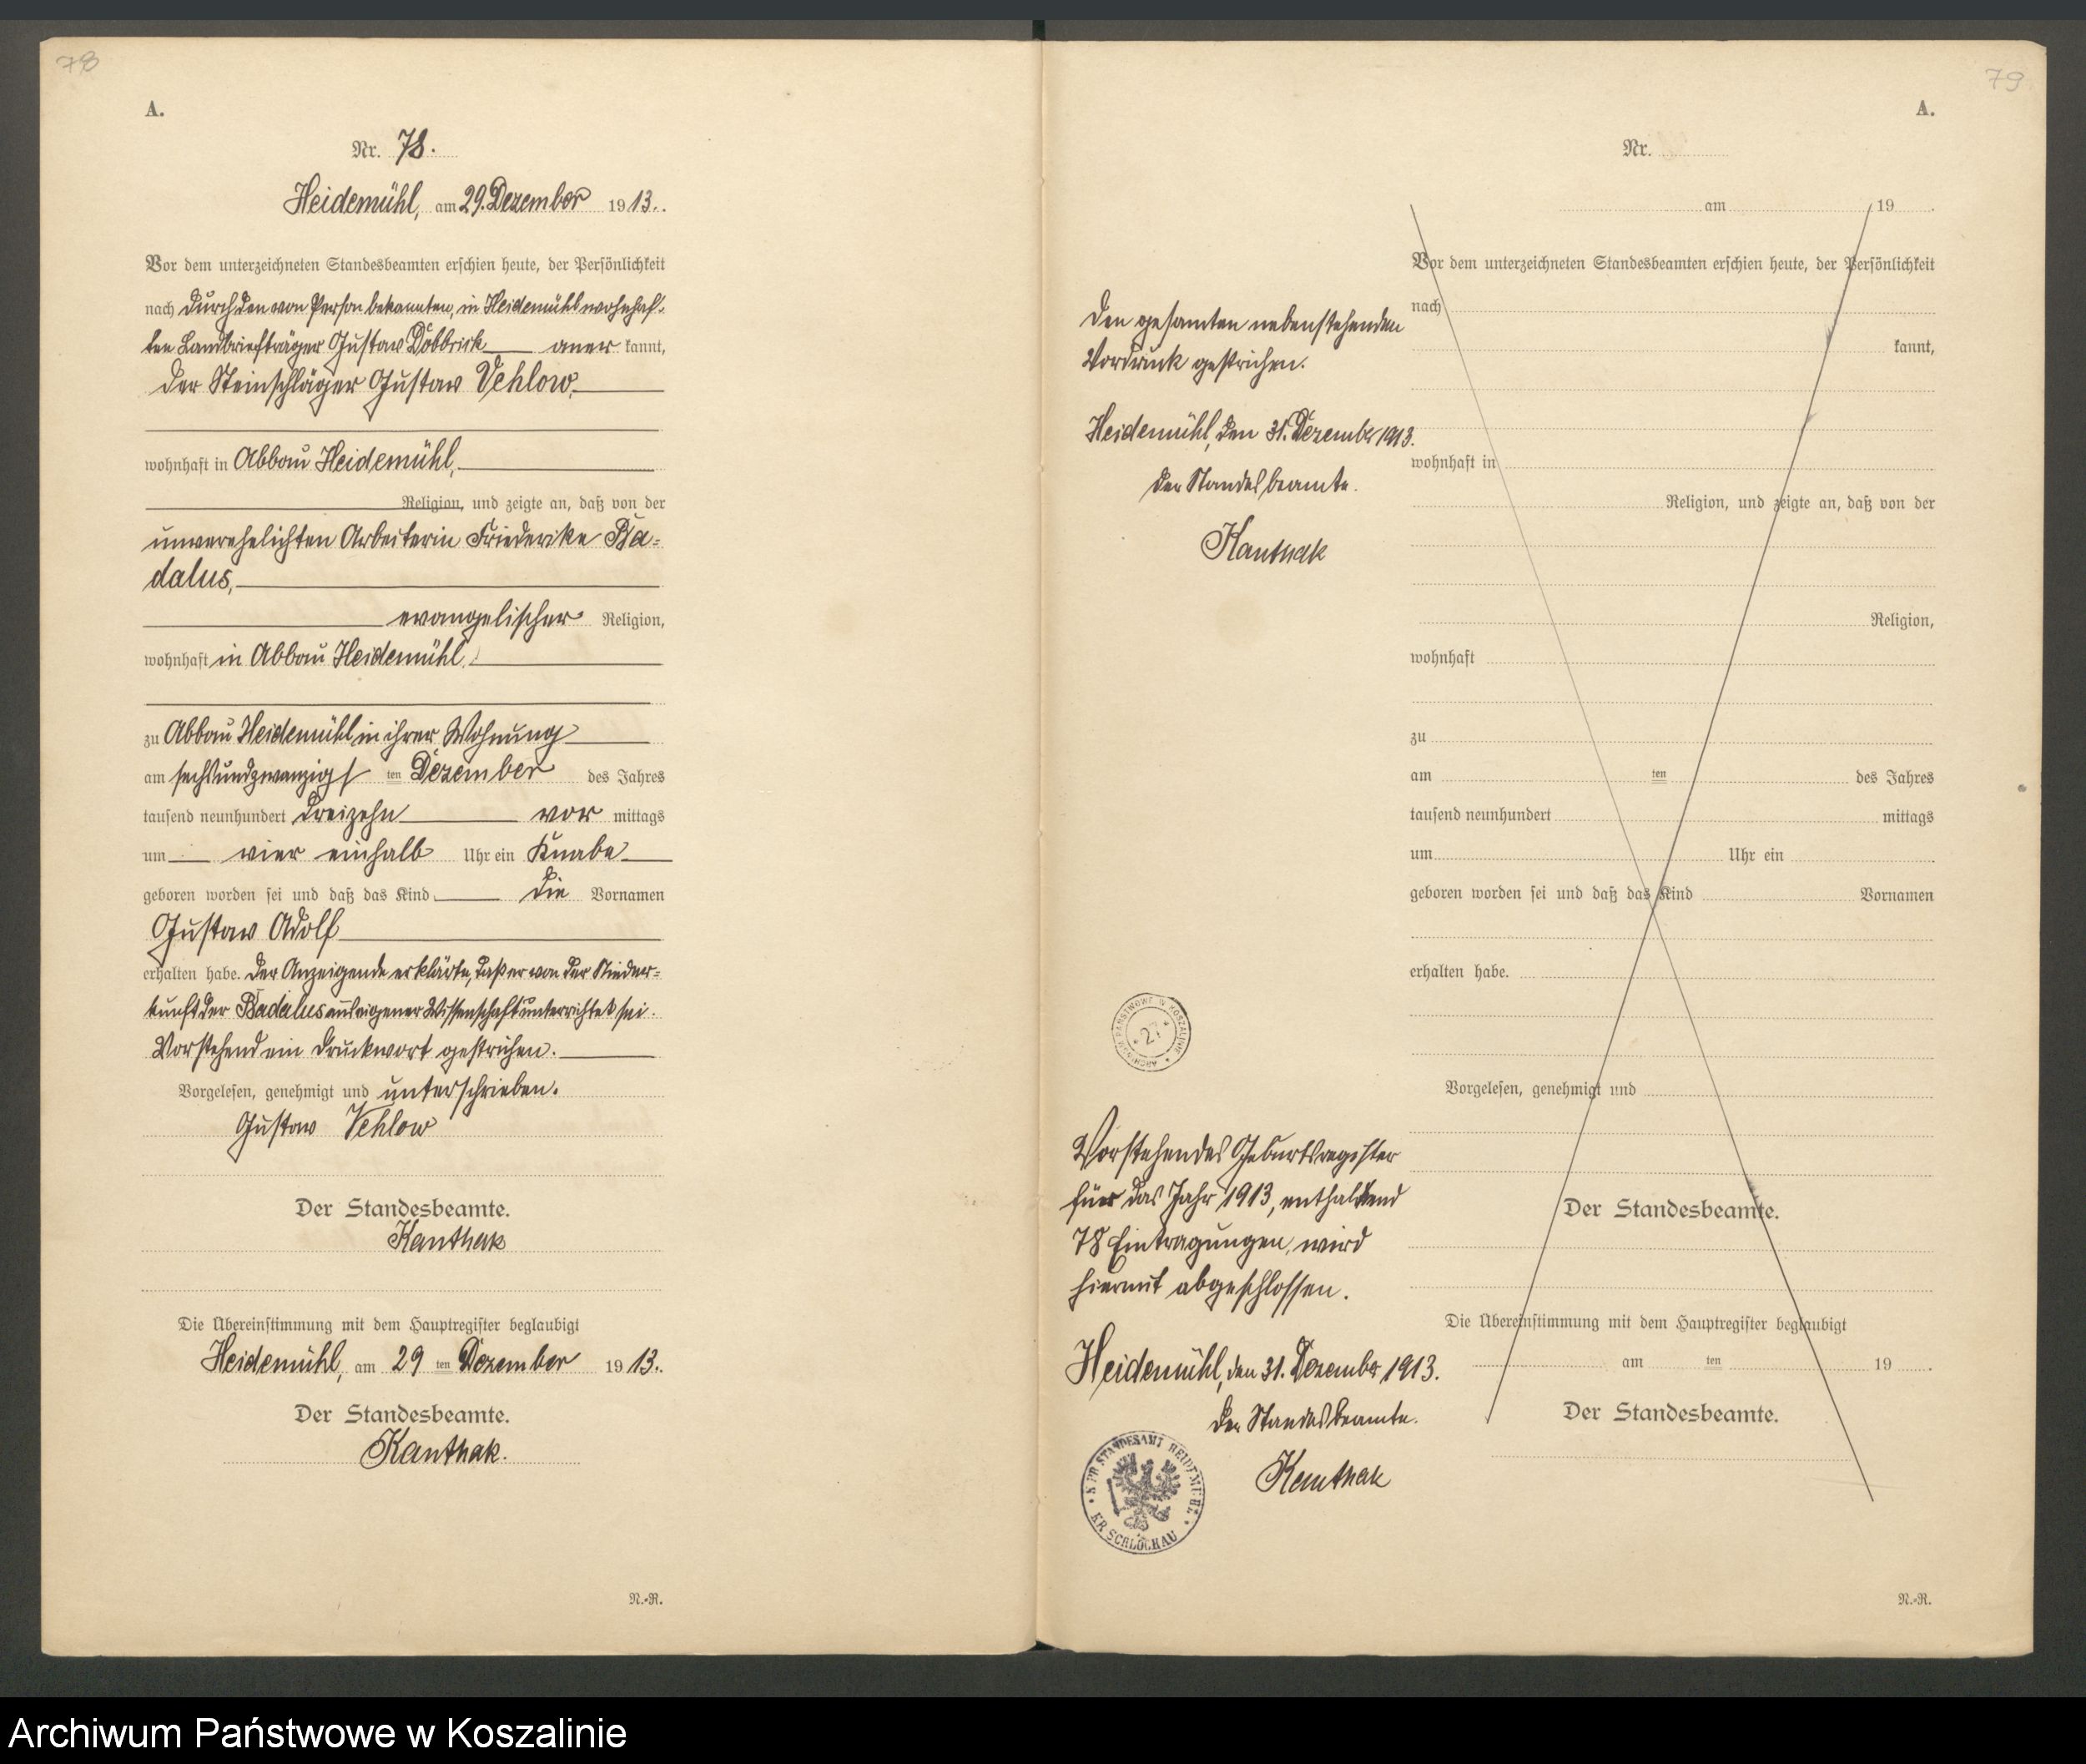 78
A.
Nr. 78.
Heidemühl, am 29. Dezember 1913.
Vor dem unterzeichneten Standesbeamten erschien heute, der Persönlichkeit
nach durch den von Person bekannten, in Heidemühl wohnhaf-
ten Landbriefträger Gustav Döbbrick anerkannt,
der Steinschläger Gustav Vehlow,
wohnhaft in Abbau Heidemühl,
Religion, und zeigte an, daß von der
unverehelichten Arbeiterin Friederike Ba=
dalus,
evangelischer Religion,
wohnhaft in Abbau Heidemühl,
zu Abbau Heidemühl in ihrer Wohnung
am sechsundzwanzigsten Dezember des Jahres
tausend neunhundert dreizehn vormittags
um vier einhalb Uhr ein Knabe
geboren worden sei und daß das Kind die Vornamen
Gustav Adolf
erhalten habe. Der Anzeigende erklärte, daß er von der Nieder=
kunft der Badalus aus eigener Wissenschaft unterrichtet sei.
Vorstehend ein Druckwort gestrichen.
Vorgelesen, genehmigt und unterschrieben.
Gustav Vehlow
Der Standesbeamte.
Kanthak
Die Übereinstimmung mit dem Hauptregister beglaubigt
Heidemühl, am 29ten Dezember 1913.
Der Standesbeamte.
Kanthak.
N.-R.
79
A.
Nr.
am 19 .
Vor dem unterzeichneten Standesbeamten erschien heute, der Persönlichkeit
nach
kannt,
wohnhaft in
Religion, und zeigte an, daß von der
Religion,
wohnhaft
zu
am ten des Jahres
tausend neunhundert mittags
um Uhr ein
geboren worden sei und daß das Kind Vornamen
erhalten habe.
Vorgelesen, genehmigt und
Der Standesbeamte.
Die Übereinstimmung mit dem Hauptregister beglaubigt
am ten 19 .
Der Standesbeamte.
N.-R.
Den gesamten nebenstehenden
Vordruck gestrichen.
Heidemühl, den 31. Dezember 1913.
Der Standesbeamte.
Kanthak
ARCHIWUM PAŃSTWOWE W KOSZALINIE
27
Vorstehendes Geburtsregister
für das Jahr 1913, enthaltend
78 Eintragungen, wird
hiermit abgeschlossen.
Heidemühl, den 31. Dezember 1913.
Der Standesbeamte.
Kanthak
K. PR. STANDESAMT HEIDEMÜHL
KR. SCHLOCHAU
Archiwum Państwowe w Koszalinie